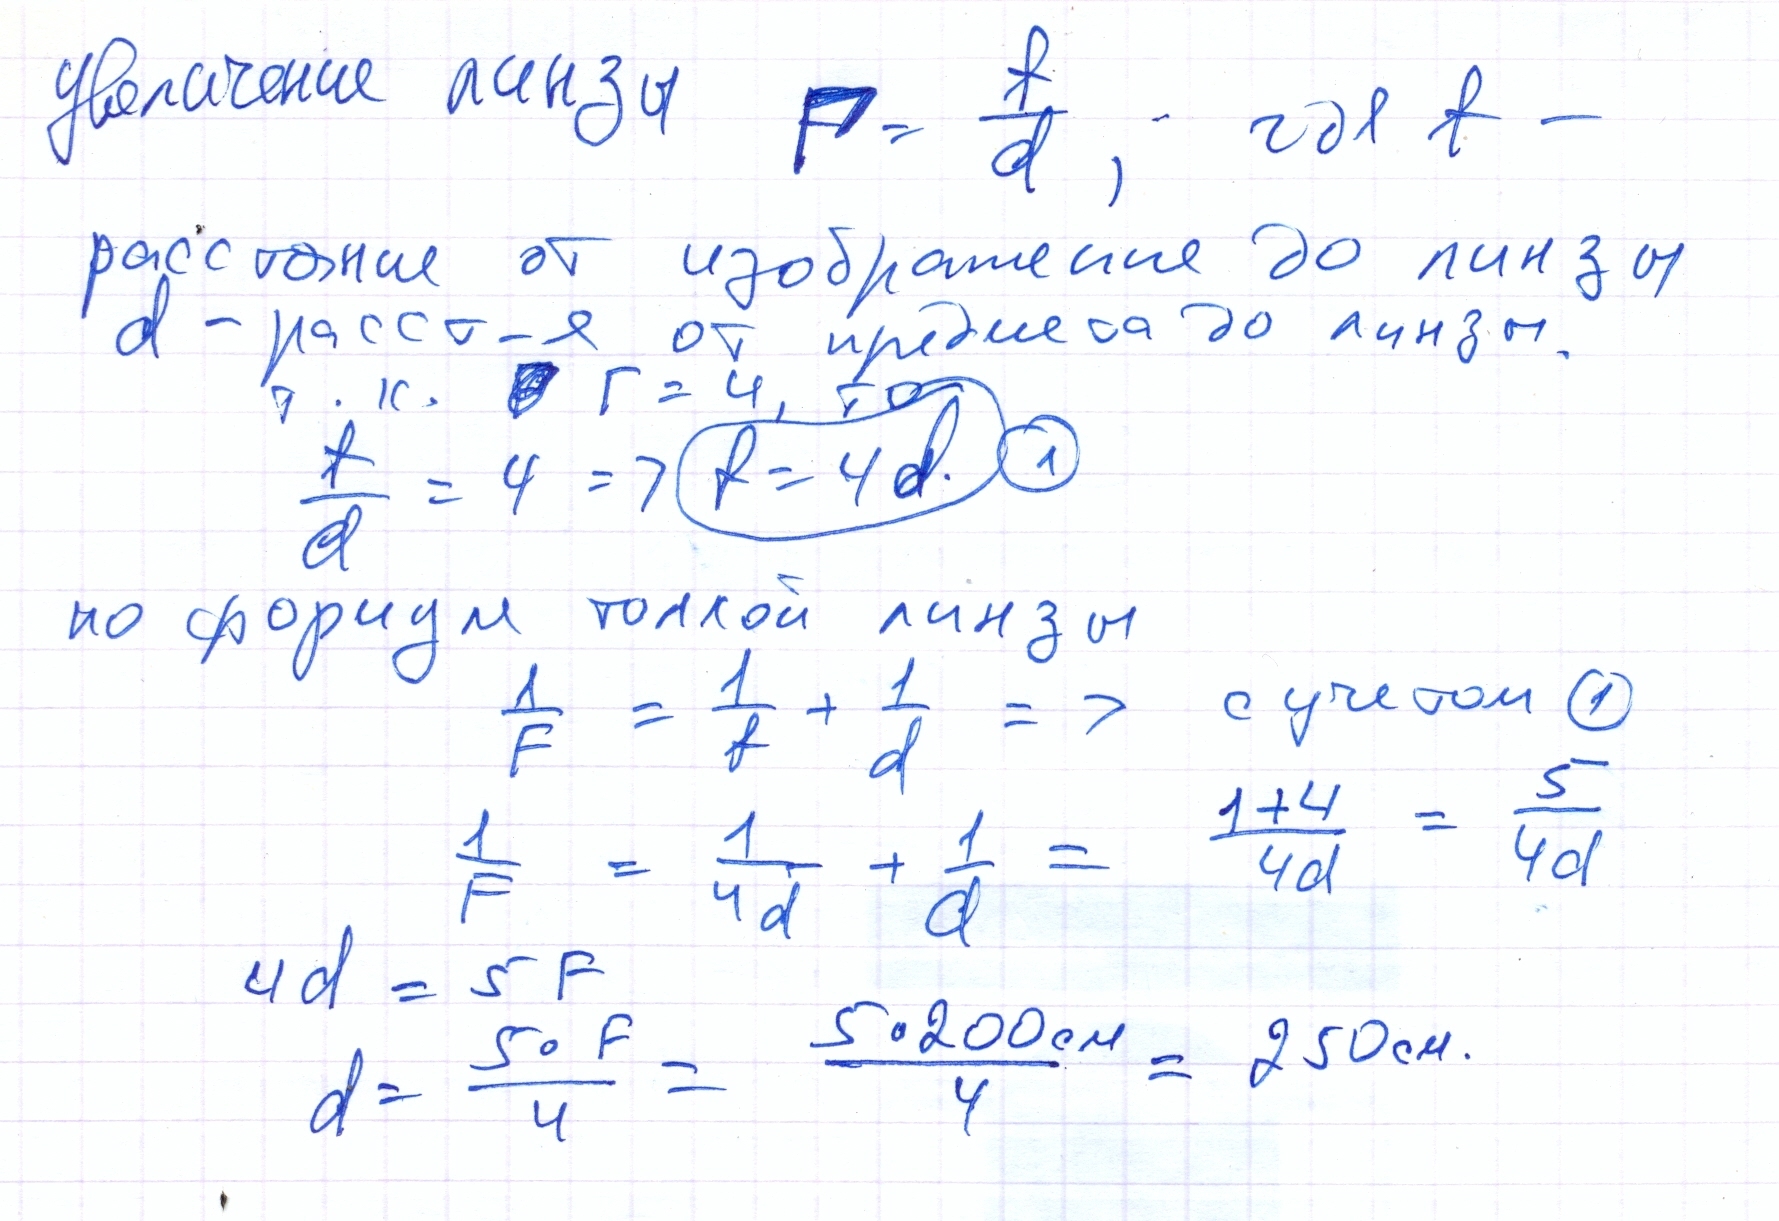 увеличение линзы Г = f/d, - где f -
расстояние от изображение до линзы
d - расст-я от предмета до линзы.
т.к. Г = 4, то
f/d = 4 => f = 4d. ①
по формул тонкой линзы
1/F = 1/f + 1/d => с учетом ①
1/F = 1/4d + 1/d = 1+4/4d = 5/4d
4d = 5F
d = 5∘F/4 = 5∘200см/4 = 250см.